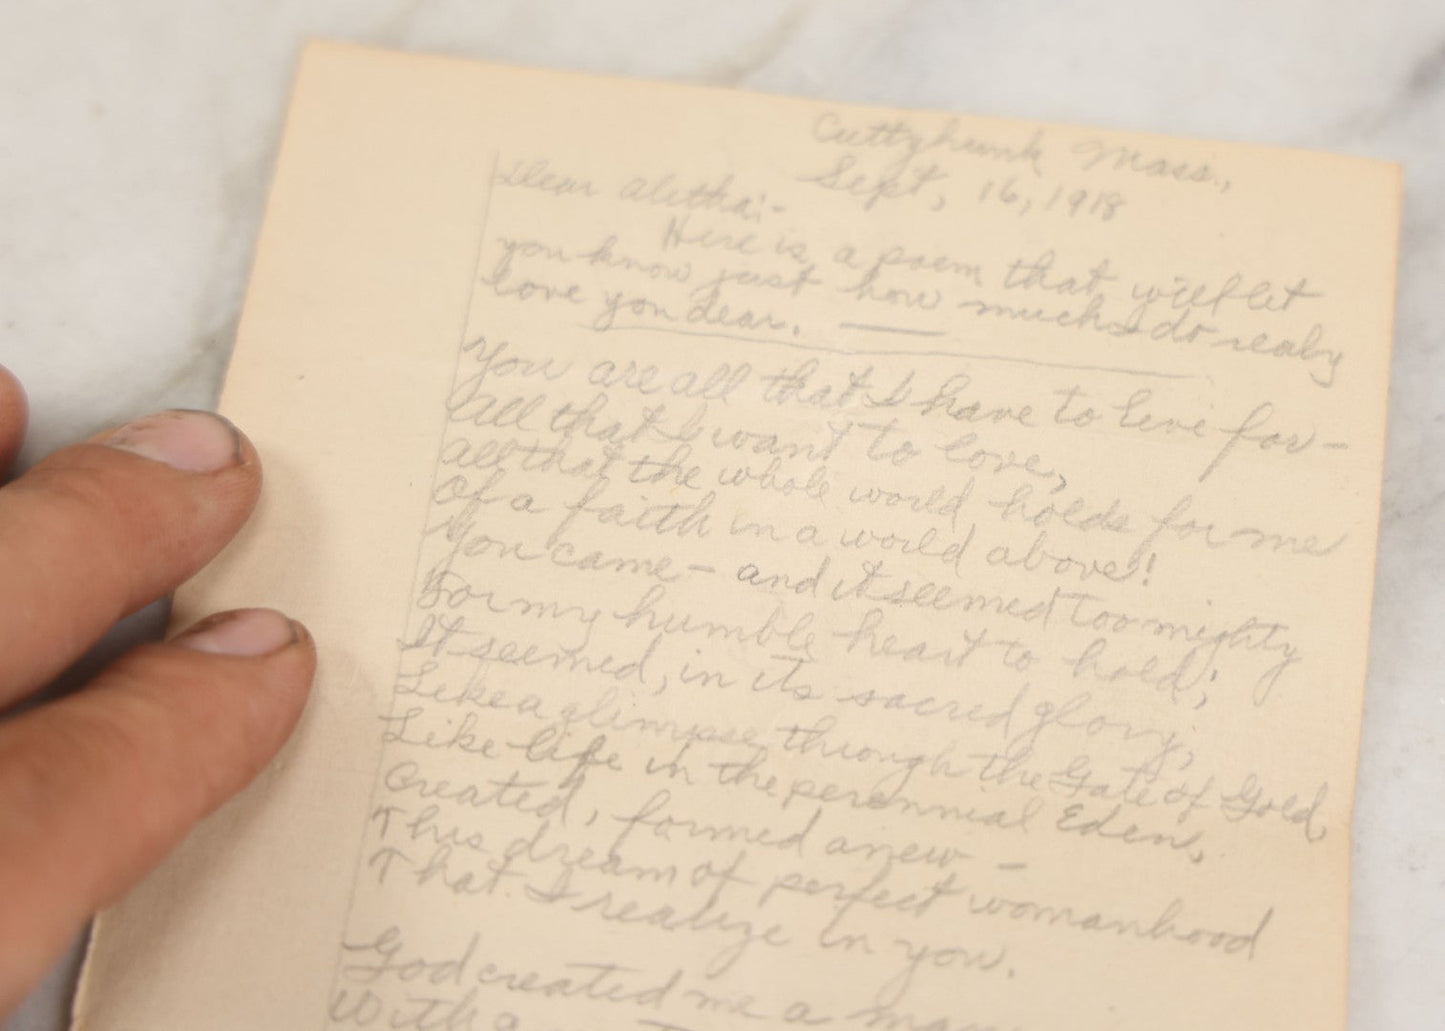 Cuttyhunk Mass.,
Sept, 16, 1918
Dear Aletha:-
Here is a poem that will let
you know just how much I do really
love you dear. —
You are all that I have to live for—
All that I want to love,
All that the whole world holds for me
Of a faith in a world above!
You came — and it seemed too mighty
For my humble heart to hold;
It seemed, in its sacred glory,
Like a glimpse through the Gate of Gold,
Like life in the perennial Eden,
Created, formed anew —
This dream of perfect womanhood
That I realize in you.
God created me a man
With a